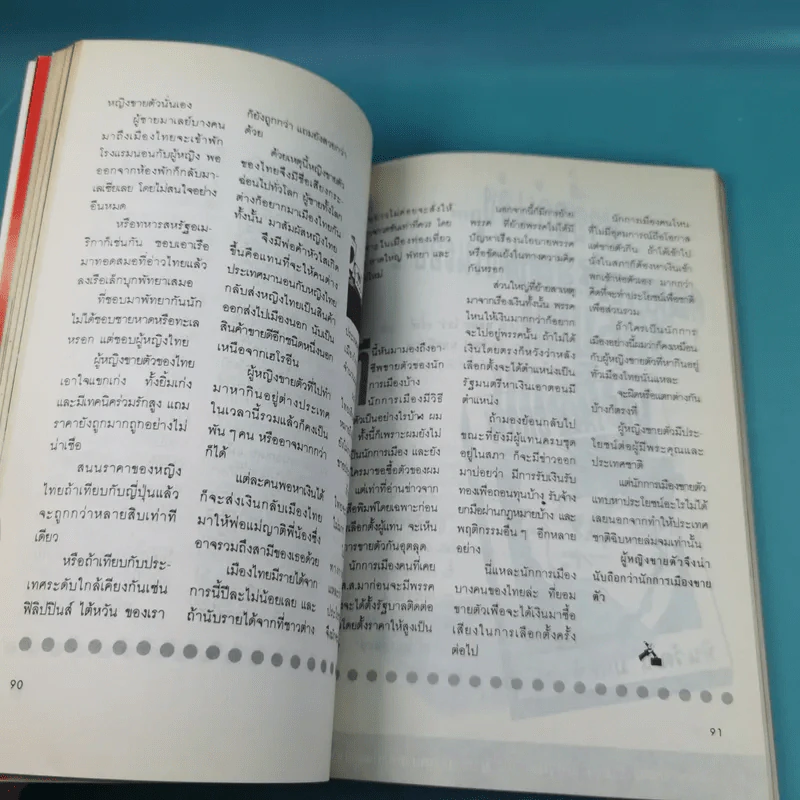 หญิงขายตัวนั่นเอง
ผู้ชายมาเลย์บางคน
มาถึงเมืองไทยจะเข้าพัก
โรงแรมนอนกับผู้หญิง พอ
ออกจากห้องพักก็กลับมา-
เลเซียเลย โดยไม่สนใจอย่าง
อื่นหมด
หรือทหารสหรัฐอเม-
ริกาก็เช่นกัน ชอบเอาเรือ
มาทอดสมอที่อ่าวไทยแล้ว
ลงเรือเล็กบุกพัทยาเสมอ
ที่ชอบมาพัทยากันนัก
ไม่ได้ชอบชายหาดหรือทะเล
หรอก แต่ชอบผู้หญิงไทย
ผู้หญิงขายตัวของไทย
เอาใจแขกเก่ง ทั้งยิ้มเก่ง
และมีเทคนิคร่วมรักสูง แถม
ราคายังถูกมากถูกอย่างไม่
น่าเชื่อ
สนนราคาของหญิง
ไทยถ้าเทียบกับญี่ปุ่นแล้ว
จะถูกกว่าหลายสิบเท่าที
เดียว
หรือถ้าเทียบกับประ-
เทศระดับใกล้เคียงกันเช่น
ฟิลิปปินส์ ไต้หวัน ของเรา
ก็ยังถูกกว่า แถมยังสวยกว่า
ด้วย
ด้วยเหตุนี้หญิงขายตัว
ของไทยจึงมีชื่อเสียงกระ-
ฉ่อนไปทั่วโลก ผู้ชายทั้งโลก
ต่างก็อยากมาเมืองไทยกัน
ทั้งนั้น มาสัมผัสหญิงไทย
จึงมีพ่อค้าหัวใสเกิด
ขึ้นคือแทนที่จะให้คนต่าง
ประเทศมานอนกับหญิงไทย
กลับส่งหญิงไทยเป็นสินค้า
ออกส่งไปเมืองนอก นับเป็น
สินค้าขายดีอีกชนิดหนึ่งนอก
เหนือจากเฮโรอีน
ผู้หญิงขายตัวที่ไปทำ
มาหากินอยู่ต่างประเทศ
ในเวลานี้รวมแล้วก็คงเป็น
พัน ๆ คน หรืออาจมากกว่า
ก็ได้
แต่ละคนพอหาเงินได้
ก็จะส่งเงินกลับเมืองไทย
มาให้พ่อแม่ญาติพี่น้องซึ่ง
อาจรวมถึงสามีของเธอด้วย
เมืองไทยมีรายได้จาก
การนี้ปีละไม่น้อยเลย และ
ถ้านับรายได้จากที่ชาวต่าง
90
นี้หันมามองถึงอา-
ชีพขายตัวของนัก
การเมืองบ้าง
นักการเมืองมีวิธี
ตัวเป็นอย่างไรบ้าง ผม
ทั้งนี้ก็เพราะผมยังไม่
นักการเมือง และยัง
ใครมาขอซื้อตัวของผม
แต่เท่าที่อ่านข่าวจาก
สือพิมพ์โดยเฉพาะก่อน
เลือกตั้งผู้แทน จะเห็น
ารขายตัวกันอุตลุด
นักการเมืองที่เคย
ส.ส.มาก่อนจะมีพรรค
จะได้ตั้งรัฐบาลติดต่อ
โดยตั้งราคาให้สูงเป็น
นอกจากนี้ก็มีการย้าย
พรรค ที่ย้ายพรรคไม่ได้มี
ปัญหาเรื่องนโยบายพรรค
หรือขัดแย้งในทางความคิด
กันหรอก
ส่วนใหญ่ที่ย้ายสาเหตุ
มาจากเรื่องเงินทั้งนั้น พรรค
ไหนให้เงินมากกว่าก็อยาก
จะไปอยู่พรรคนั้น ถ้าไม่ได้
เงินโดยตรงก็หวังว่าหลัง
เลือกตั้งจะได้ตำแหน่งเป็น
รัฐมนตรีหาเงินเอาตอนมี
ตำแหน่ง
ถ้ามองย้อนกลับไป
ขณะที่ยังมีผู้แทนครบชุด
อยู่ในสภา ก็จะมีข่าวออก
มาบ่อยว่า มีการรับเงินรับ
ทองเพื่อถอนทุนบ้าง รับจ้าง
ยกมือผ่านกฎหมายบ้าง และ
พฤติกรรมอื่น ๆ อีกหลาย
อย่าง
นี่แหละนักการเมือง
บางคนของไทยล่ะ ที่ยอม
ขายตัวเพื่อจะได้เงินมาซื้อ
เสียงในการเลือกตั้งครั้ง
ต่อไป
นักการเมืองคนไหน
ที่ไม่มีอุดมการณ์ถือโอกาส
แต่ขายตัวกิน ถ้าได้เข้าไป
นั่งในสภาก็ต้องหาเงินเข้า
พกเข้าห่อตัวเอง มากกว่า
คิดที่จะทำประโยชน์เพื่อชาติ
เพื่อส่วนรวม
ถ้าใครเป็นนักการ
เมืองอย่างนี้ผมว่าก็คงเหมือน
กับผู้หญิงขายตัวที่หากินอยู่
ทั่วเมืองไทยนั่นแหละ
จะผิดหรือแตกต่างกัน
บ้างก็ตรงที่
ผู้หญิงขายตัวมีประ-
โยชน์ต่อผู้มีพระคุณและ
ประเทศชาติ
แต่นักการเมืองขายตัว
แทบหาประโยชน์อะไรไม่ได้
เลยนอกจากทำให้ประเทศ
ชาติฉิบหายล่มจมเท่านั้น
ผู้หญิงขายตัวจึงน่า
นับถือกว่านักการเมืองขาย
ตัว
91